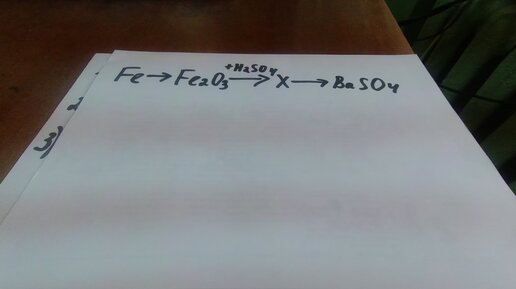 Fe→Fe₂O₃ +H₂SO₄→ X→BaSO₄
3)